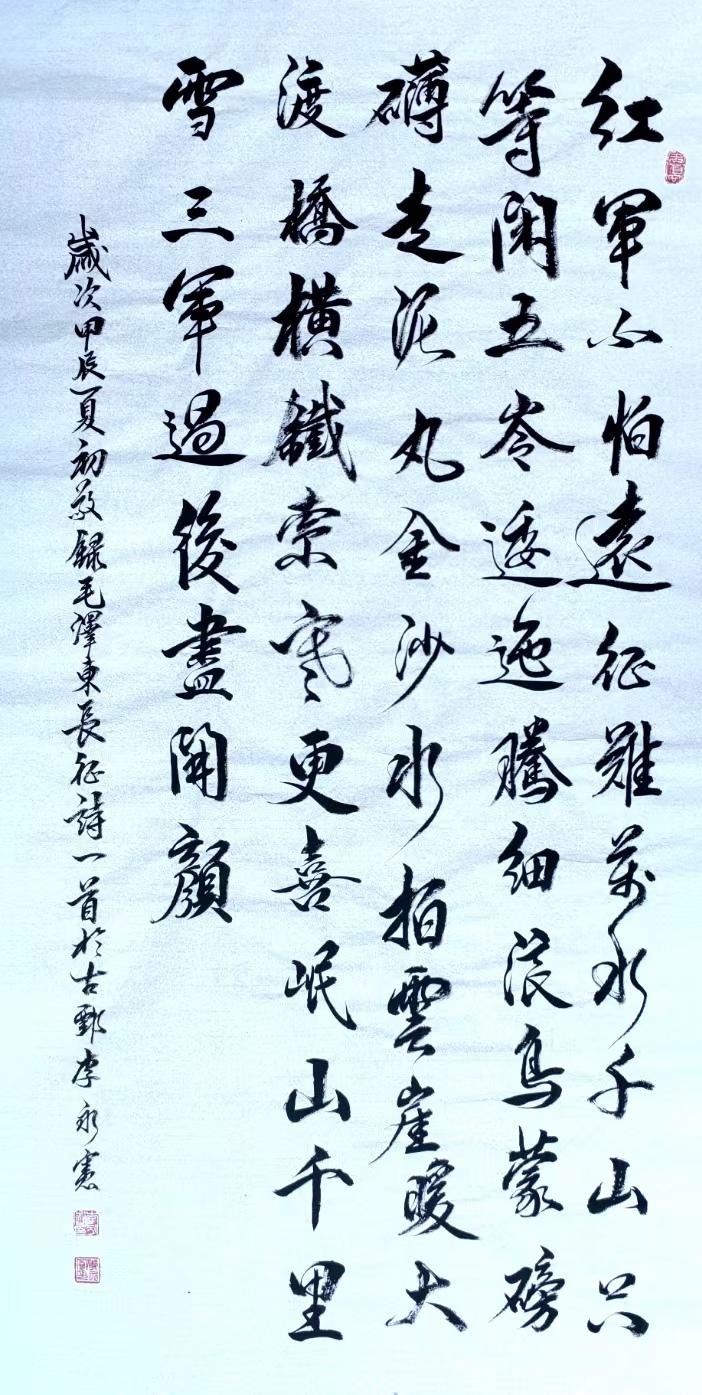 紅軍不怕遠征難萬水千山只
等閑五岺逶迤騰細浪烏蒙磅
礴走泥丸金沙水拍雲崖暖大
渡橋橫鐵索寒更喜岷山千里
雪三軍過後盡開顏
歲次甲辰夏初敬錄毛澤東長征詩一首於古鄄李永憲